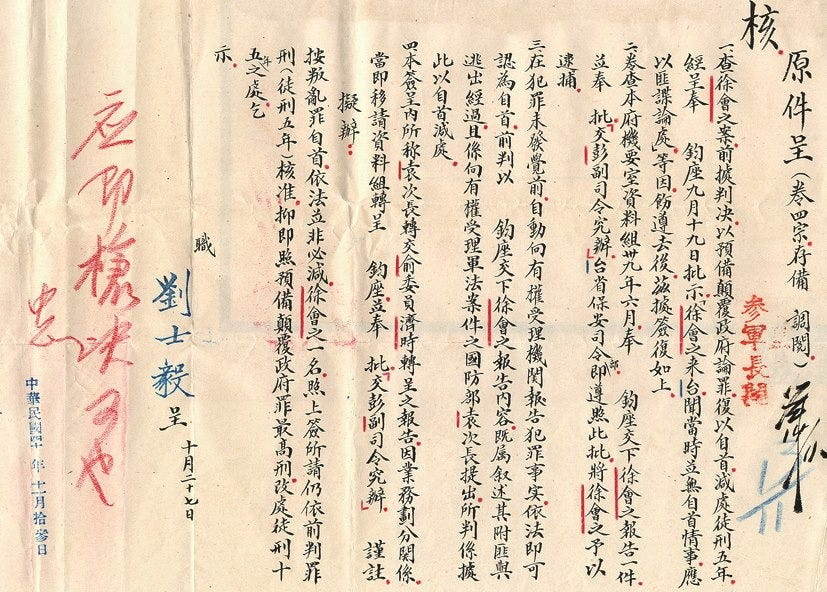 核
原件呈(卷四宗存備 調閱)
參軍長閱
一、查徐會之案前據判決以預備顛覆政府論罪復以自首減處徒刑五年
經呈奉 鈞座九月十九日批示「徐會之來台聞當時並無自首情事應
以匪諜論處」等因飭遵去後茲據簽復如上
二、卷查本府機要室資料組卅九年六月奉 鈞座交下徐會之報告一件
並奉 批「交彭副司令究辦」台省保安司令部即遵照此批將徐會之予以
逮捕
三、在犯罪未發覺前自動向有權受理機関報告犯罪事实依法即可
認為自首前判以 鈞座交下徐會之報告內容既属叙述其附匪與
逃出經過且係向有權受理軍法案件之國防部袁次長提出所判係據
此以自首減處
四、本簽呈內所称袁次長轉交俞委員濟時轉呈之報告因業務劃分関係
當即移請資料組轉呈 鈞座並奉 批「交彭副司令究辦」 謹註
擬辦
按叛亂罪自首依法並非必減徐會之一名照上簽所請仍依前判罪
刑(徒刑五年)核准抑即照預備顛覆政府罪最高刑改處徒刑十
五年之處乞
示
職
劉士毅 呈 十月二十七日
應即槍決可也
中華民國 年十一月拾參日